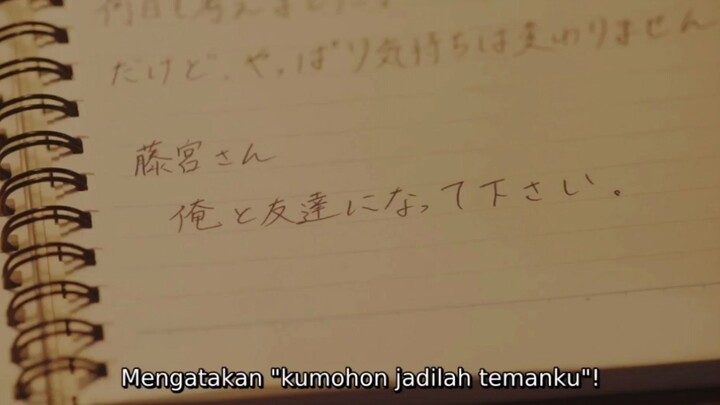 何日も考えました。
だけど、やっぱり気持ちは変わりません
藤宮さん
俺と友達になって下さい。
Mengatakan "kumohon jadilah temanku"!